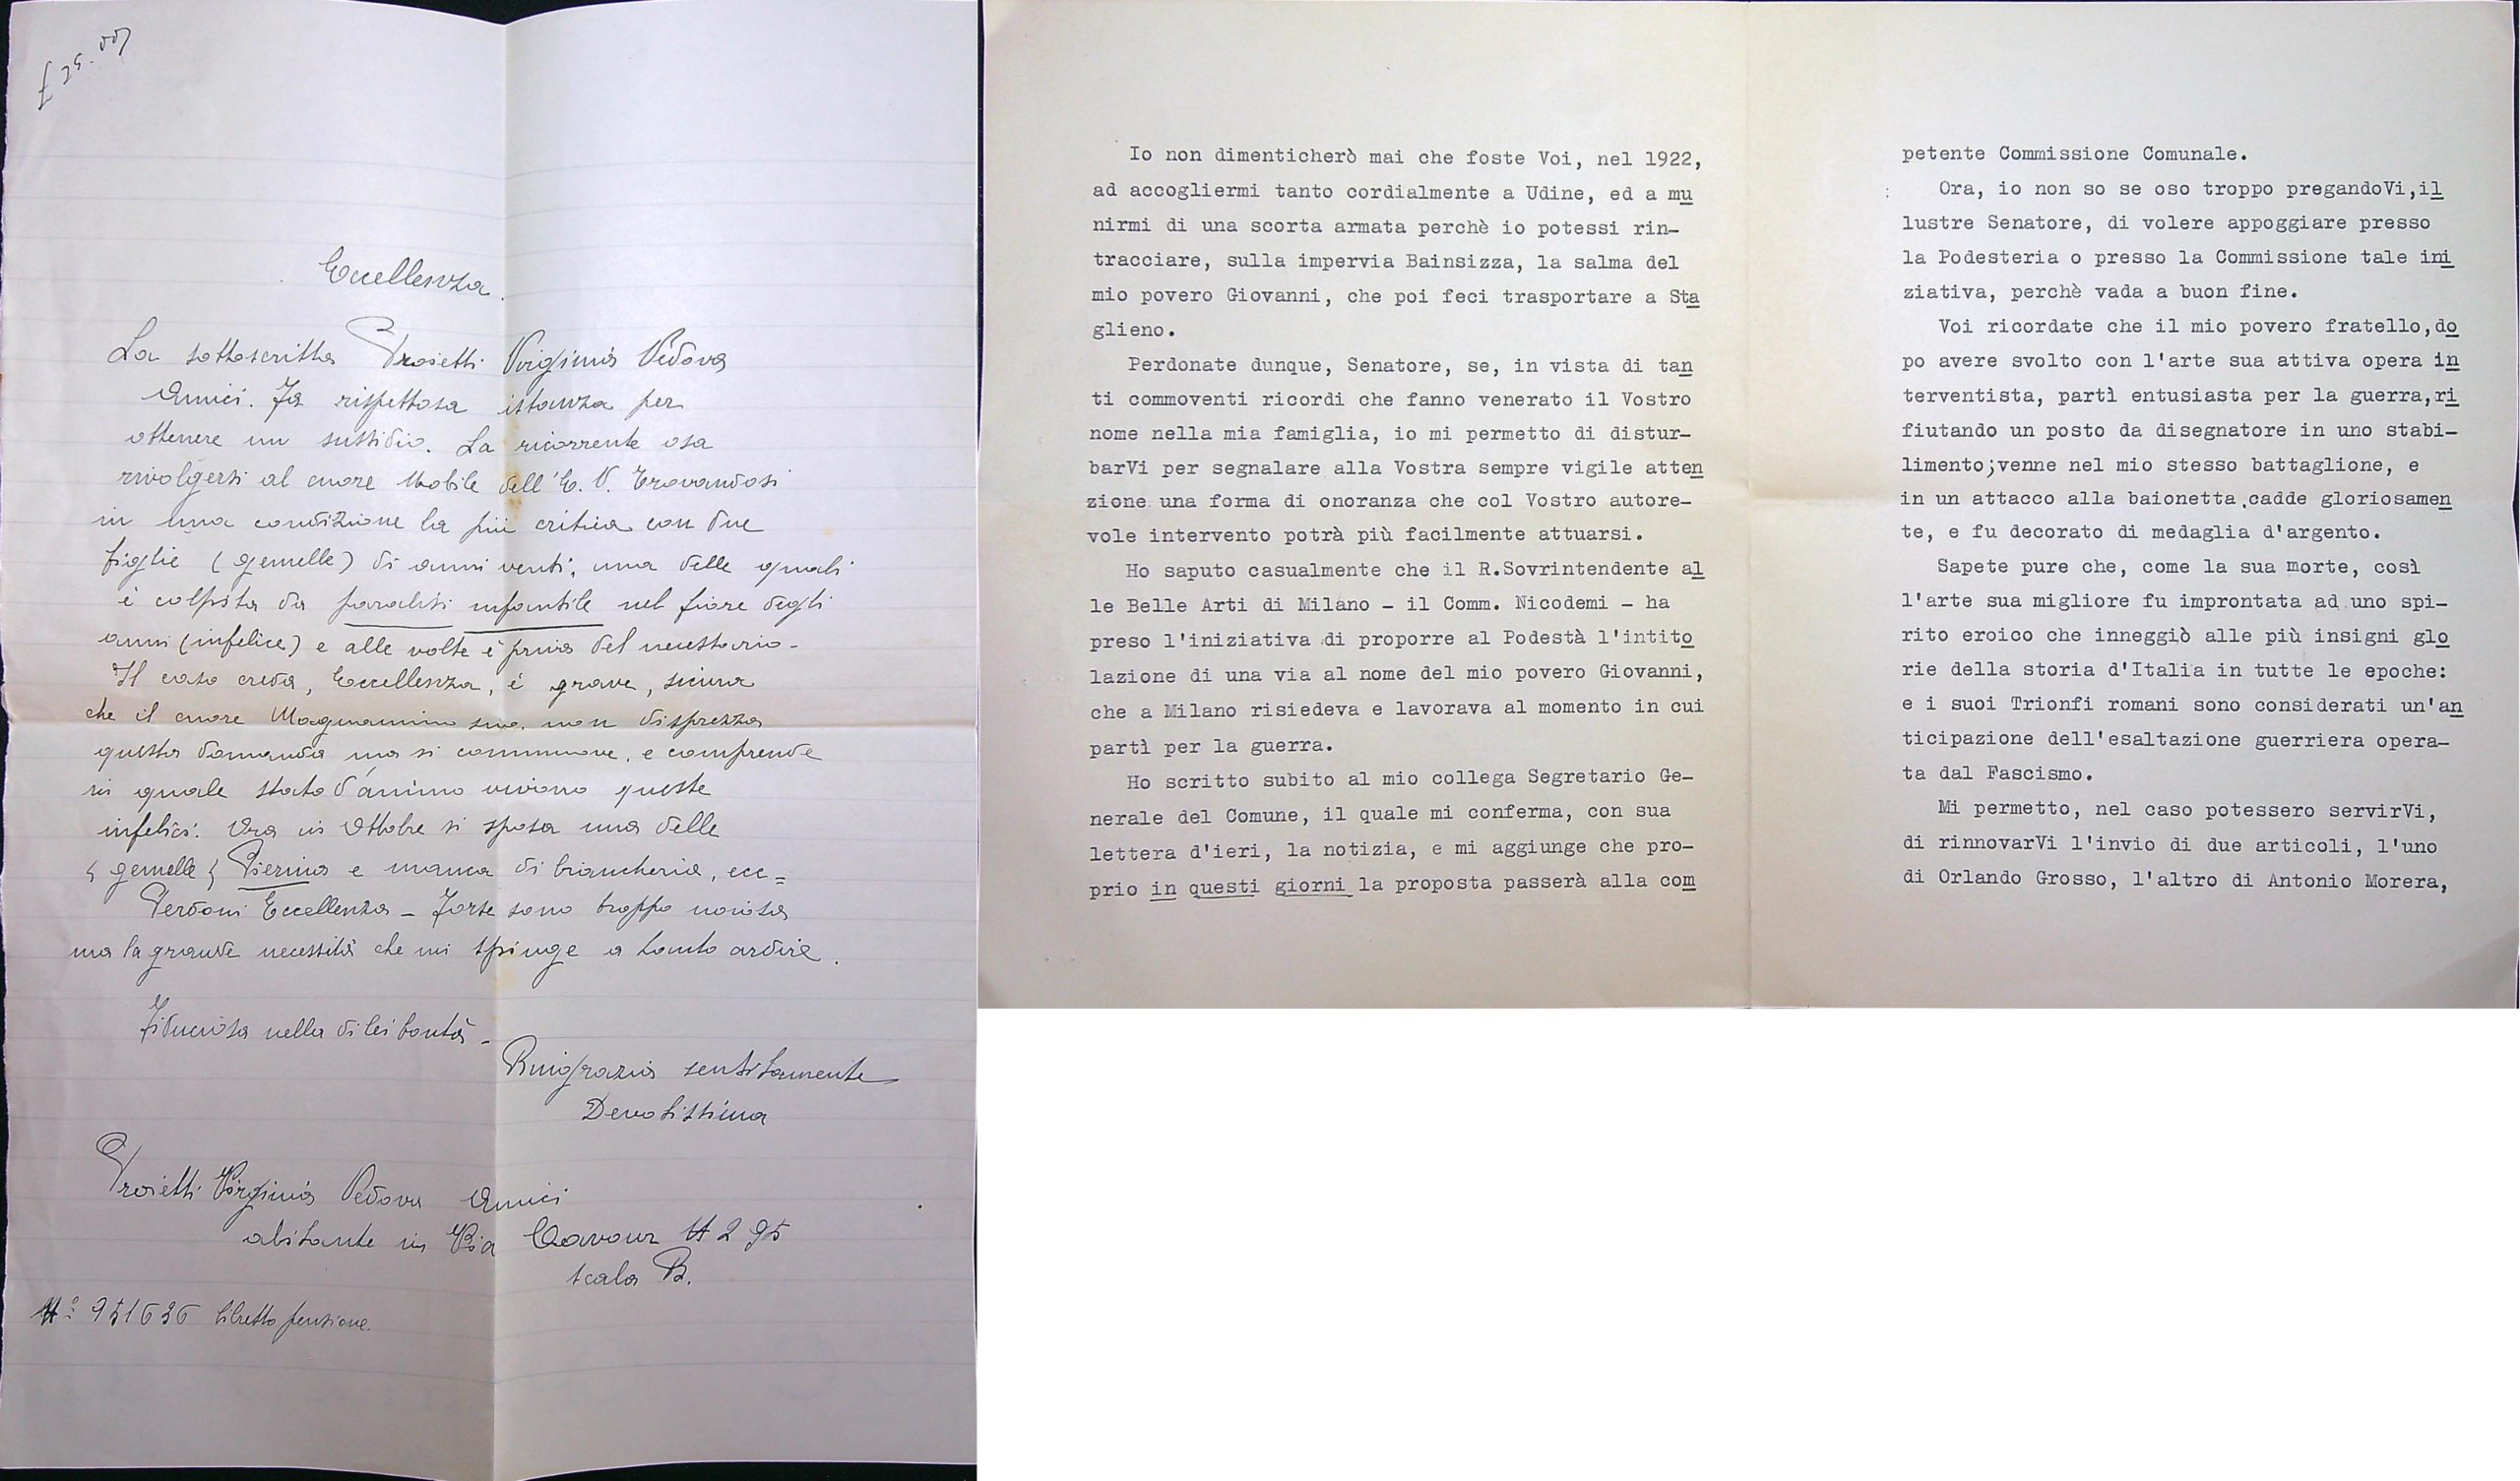 £ 25.00
Eccellenza.
La sottoscritta Proietti Virginia Vedova
Amici. Fa rispettosa istanza per
ottenere un sussidio. La ricorrente osa
rivolgersi al cuore Nobile dell'E. V. trovandosi
in una condizione la più critica con due
figlie (gemelle) di anni venti, una delle quali
è colpita da paralisi infantile nel fiore degli
anni (infelice) e alle volte è priva del necessario -
Il caso creda, Eccellenza, è grave, sicura
che il cuore Magnanimo suo. non disprezza
questa domanda ma si commuove. e comprende
in quale stato d'animo vivono queste
infelici. Ora in Ottobre si sposa una delle
gemelle Pierina e manca di biancheria, ecc =
Perdoni Eccellenza - Forse sono troppo noiosa
ma la grande necessità che mi spinge a tanto ardire.
Fiduciosa nella di lei bontà -
Ringrazia sentitamente
Devotissima
Proietti Virginia Vedova Amici
abitante in Via Cavour N 295
scala B.
N.° 951636 libretto pensione.
Io non dimenticherò mai che foste Voi, nel 1922,
ad accogliermi tanto cordialmente a Udine, ed a mu
nirmi di una scorta armata perchè io potessi rin-
tracciare, sulla impervia Bainsizza, la salma del
mio povero Giovanni, che poi feci trasportare a Sta
glieno.
Perdonate dunque, Senatore, se, in vista di tan
ti commoventi ricordi che fanno venerato il Vostro
nome nella mia famiglia, io mi permetto di distur-
barVi per segnalare alla Vostra sempre vigile atten
zione una forma di onoranza che col Vostro autore-
vole intervento potrà più facilmente attuarsi.
Ho saputo casualmente che il R.Sovrintendente al
le Belle Arti di Milano - il Comm. Nicodemi - ha
preso l'iniziativa di proporre al Podestà l'intito
lazione di una via al nome del mio povero Giovanni,
che a Milano risiedeva e lavorava al momento in cui
partì per la guerra.
Ho scritto subito al mio collega Segretario Ge-
nerale del Comune, il quale mi conferma, con sua
lettera d'ieri, la notizia, e mi aggiunge che pro-
prio in questi giorni la proposta passerà alla com
petente Commissione Comunale.
Ora, io non so se oso troppo pregandoVi,il
lustre Senatore, di volere appoggiare presso
la Podesteria o presso la Commissione tale ini
ziativa, perchè vada a buon fine.
Voi ricordate che il mio povero fratello,do
po avere svolto con l'arte sua attiva opera in
terventista, partì entusiasta per la guerra,ri
fiutando un posto da disegnatore in uno stabi-
limento;venne nel mio stesso battaglione, e
in un attacco alla baionetta,cadde gloriosamen
te, e fu decorato di medaglia d'argento.
Sapete pure che, come la sua morte, così
l'arte sua migliore fu improntata ad uno spi-
rito eroico che inneggiò alle più insigni glo
rie della storia d'Italia in tutte le epoche:
e i suoi Trionfi romani sono considerati un'an
ticipazione dell'esaltazione guerriera opera-
ta dal Fascismo.
Mi permetto, nel caso potessero servirVi,
di rinnovarVi l'invio di due articoli, l'uno
di Orlando Grosso, l'altro di Antonio Morera,